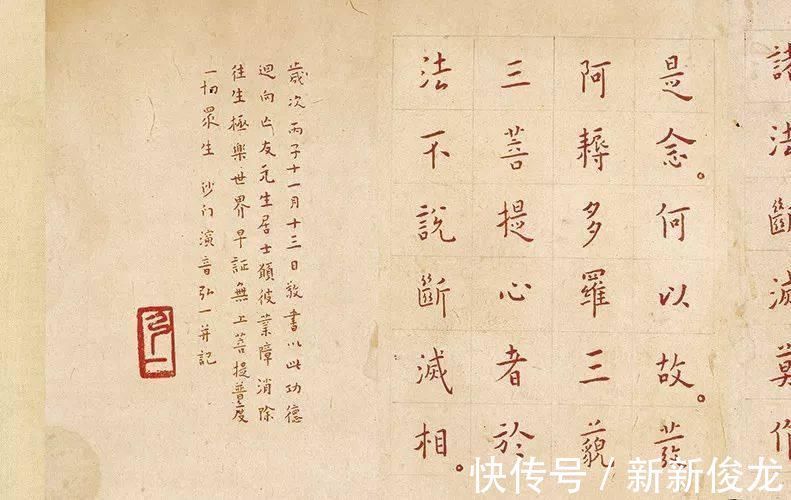 諸法斷滅莫作
是念。何以故。發
阿耨多羅三藐
三菩提心者於
法不說斷滅相。
歲次丙子十一月十三日敬書以此功德
迴向亡友元生居士願彼業障消除
往生極樂世界早証無上菩提普度
一切眾生 沙門演音弘一并記
弘一
快传号 / 新新俊龙